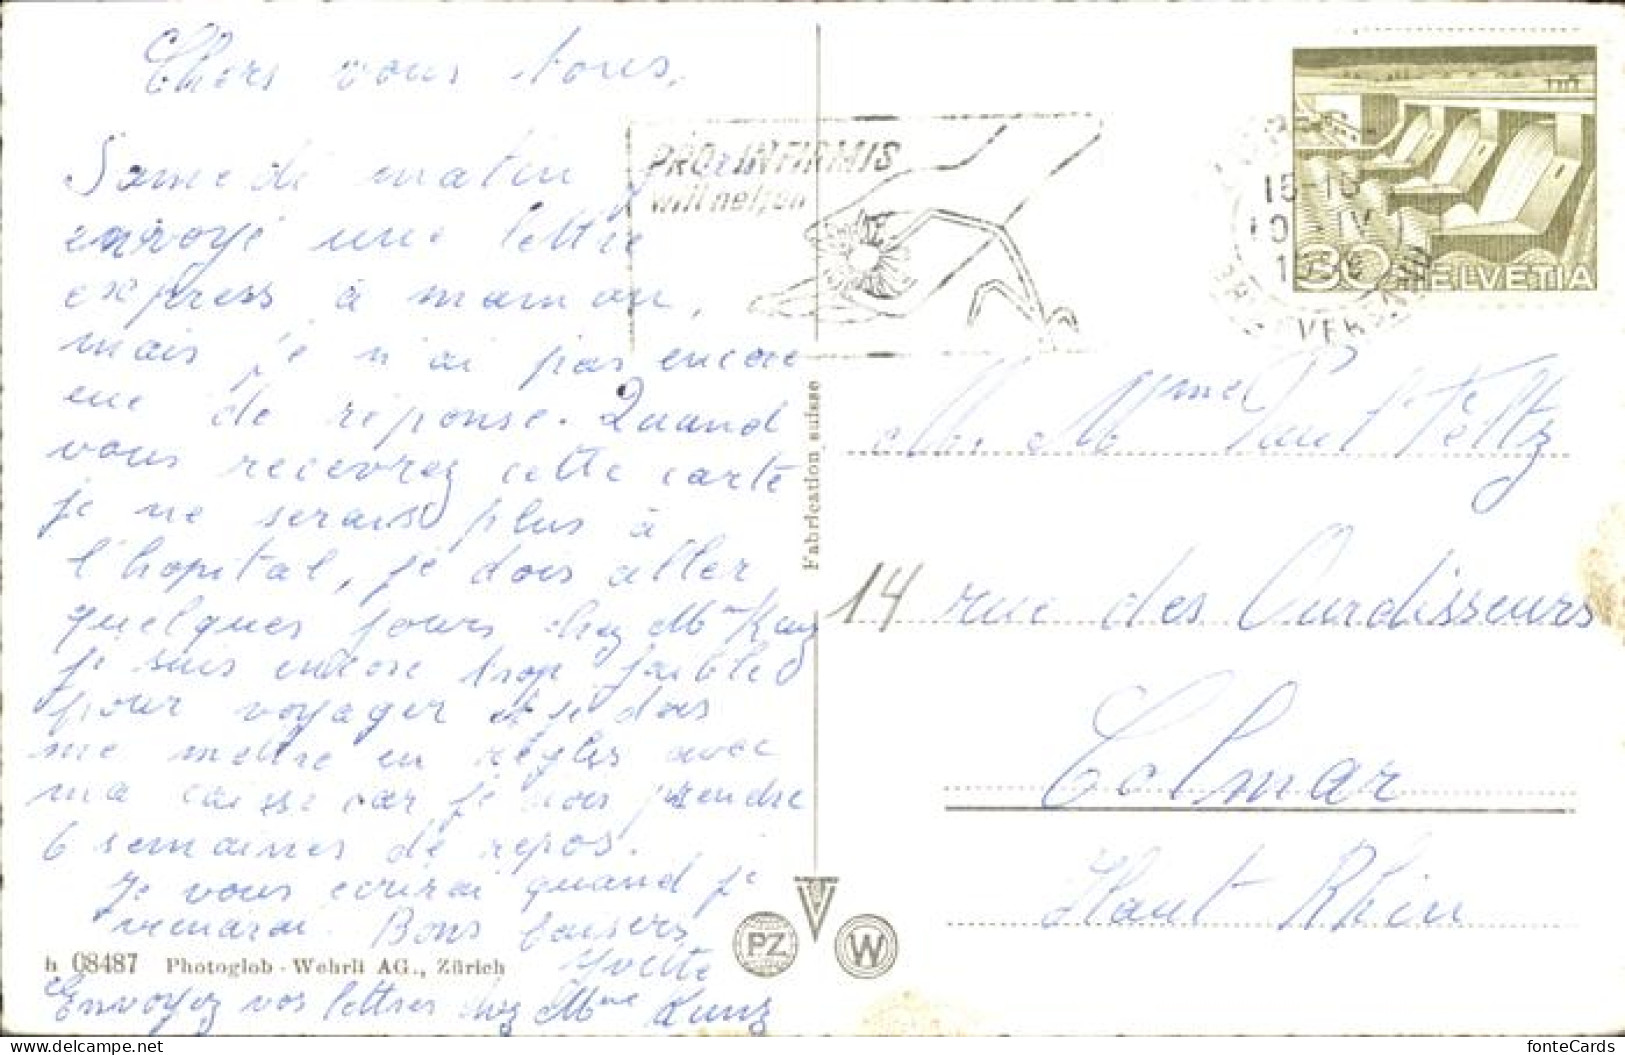 Chers vous tous,
Samedi matin j'
envoyé une lettre
express à maman,
mais je n'ai pas encore
eue de réponse. Quand
vous recevrez cette carte
je ne serais plus à
l'hopital, je dois aller
quelques jours chez Mme Kunz
je suis encore trop faible
pour voyager et je dois
me mettre en règles avec
ma caisse car je dois prendre
6 semaines de repos.
Je vous écrirai quand je
viendrai. Bons baisers
Yvette
Envoyez vos lettres chez Mme Kunz
h 08487 Photoglob-Wehrli AG., Zürich
Fabrication suisse
PZ
W
PRO INFIRMIS
will helfen
15-16
10. IV
30 HELVETIA
M. Mme Paul Feltz
14 rue des Ourdisseurs
Colmar
Haut Rhin
fonteCards